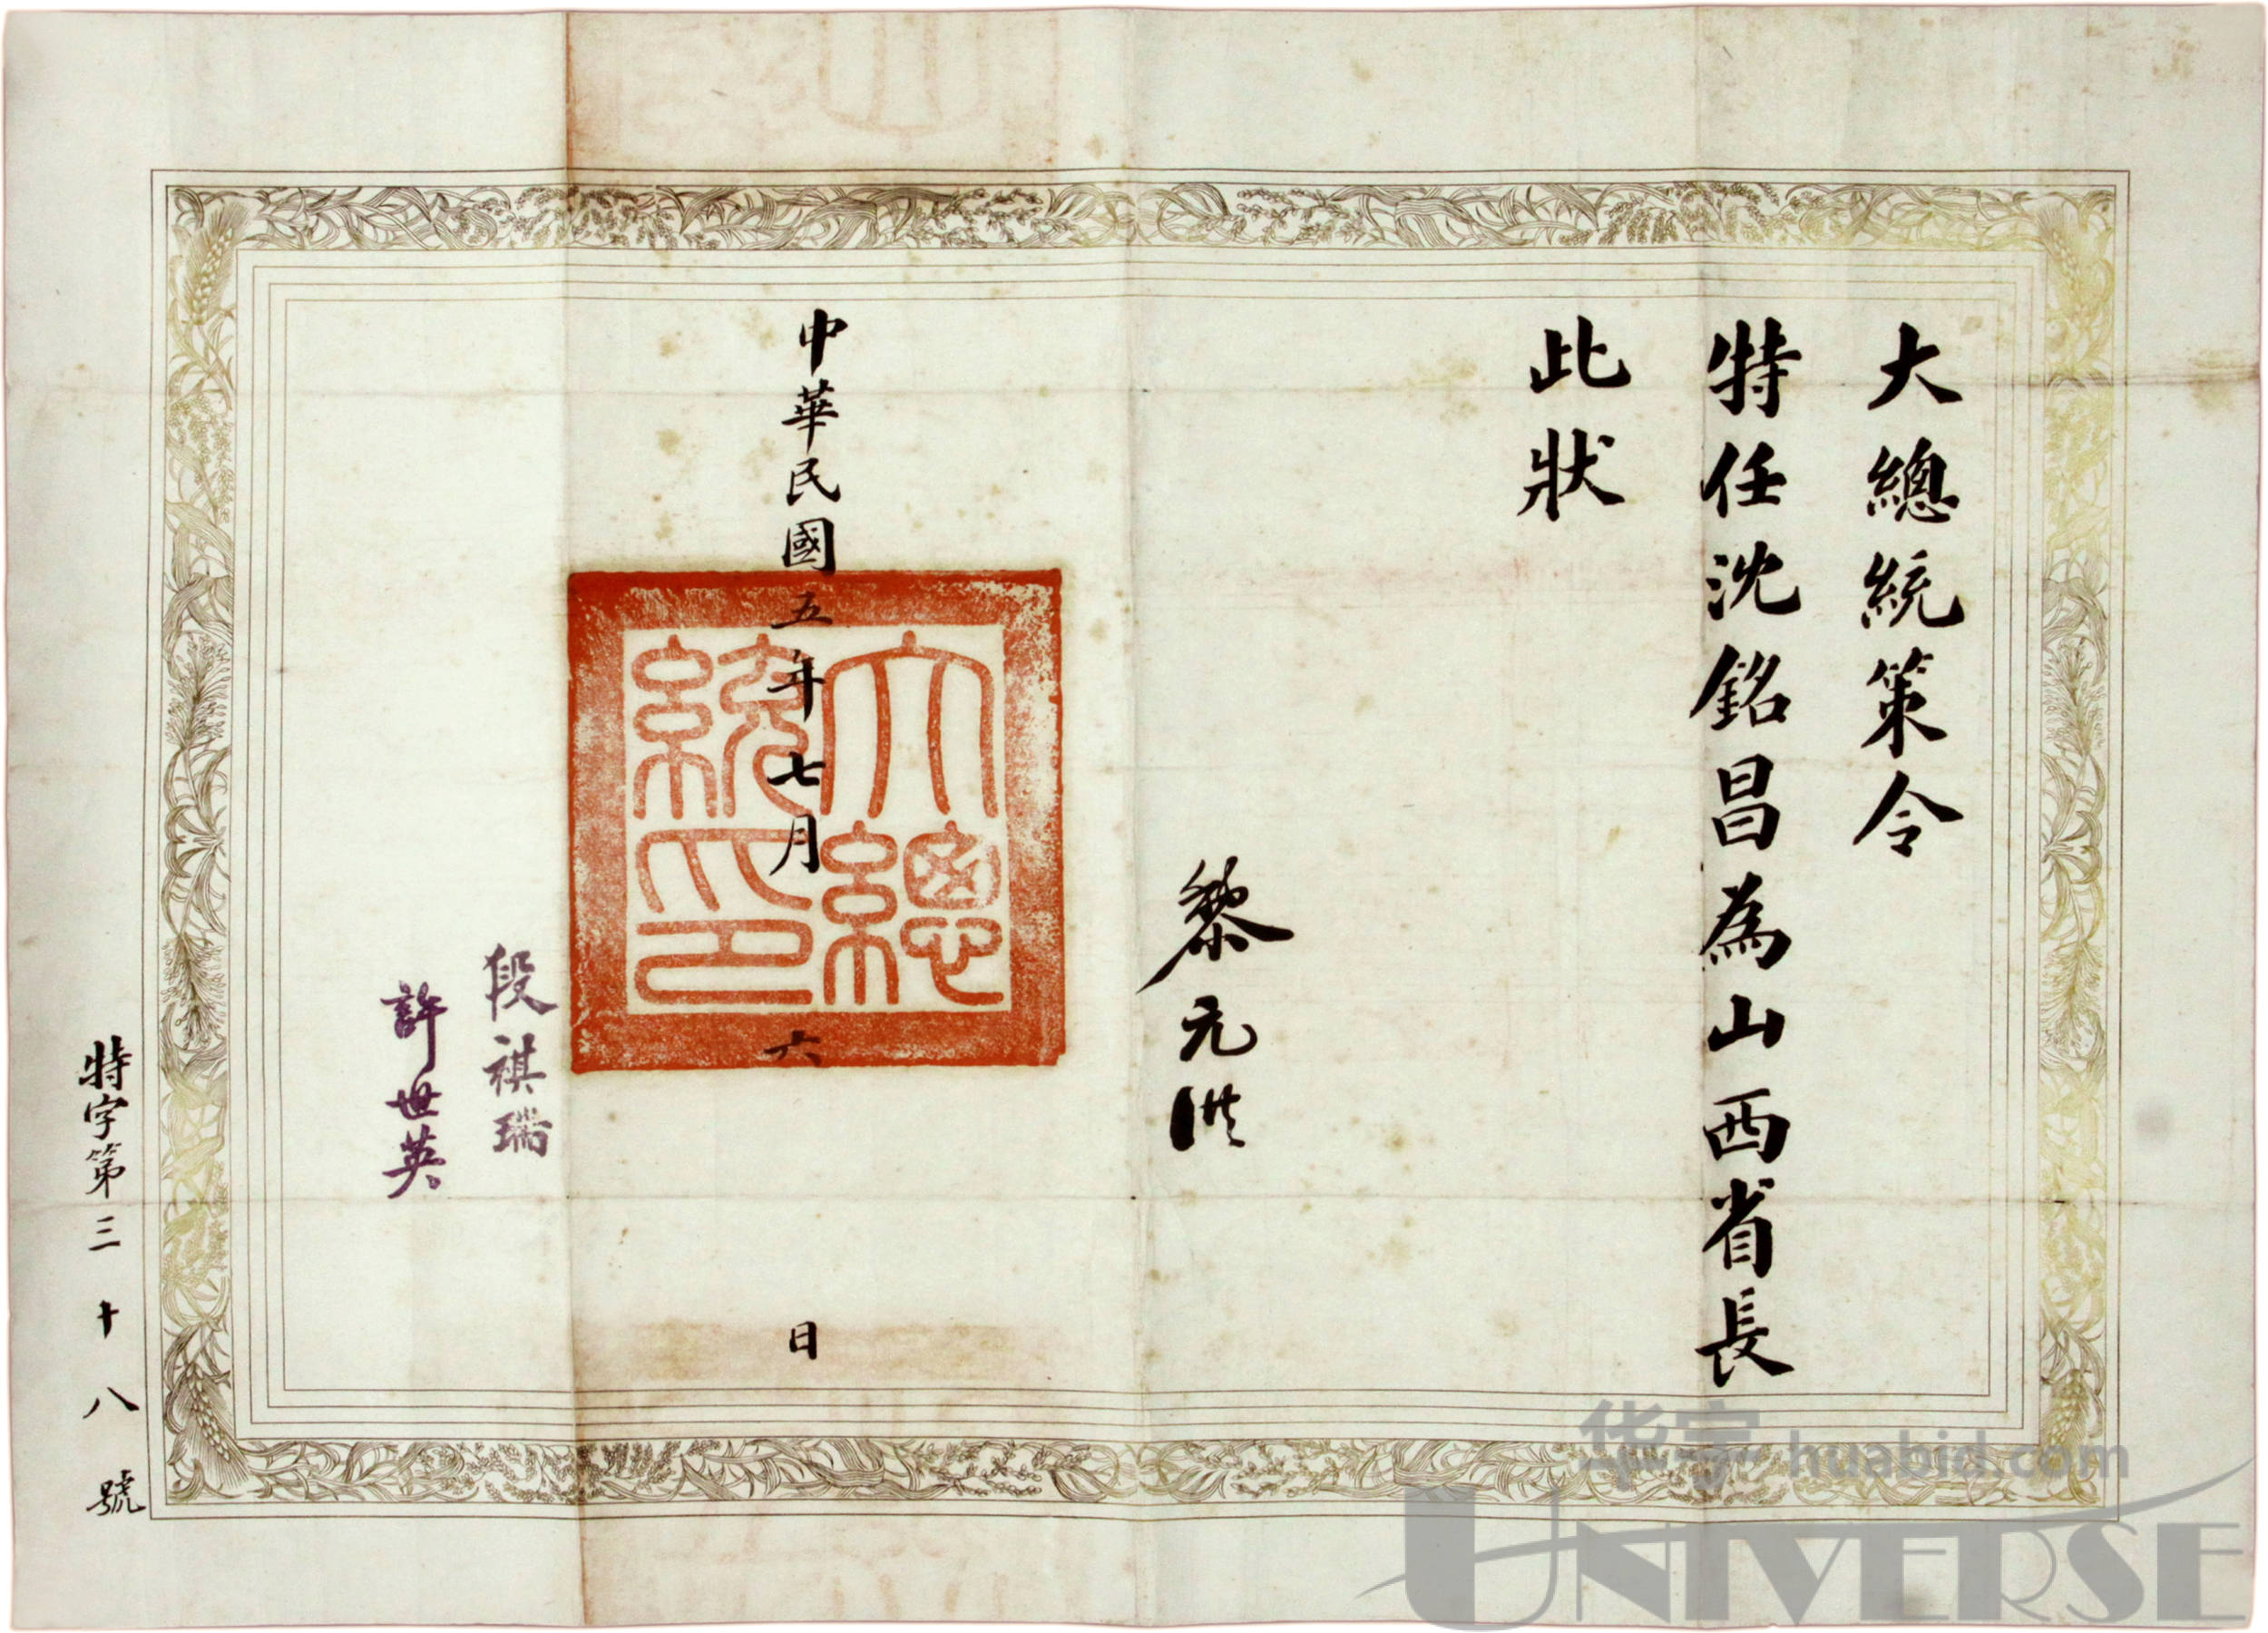 大總統策令
特任沈銘昌為山西省長
此狀
黎元洪
中華民國五年七月六日
大總統印
段祺瑞
許世英
特字第三十八號
华宇 huabid.com
UNIVERSE